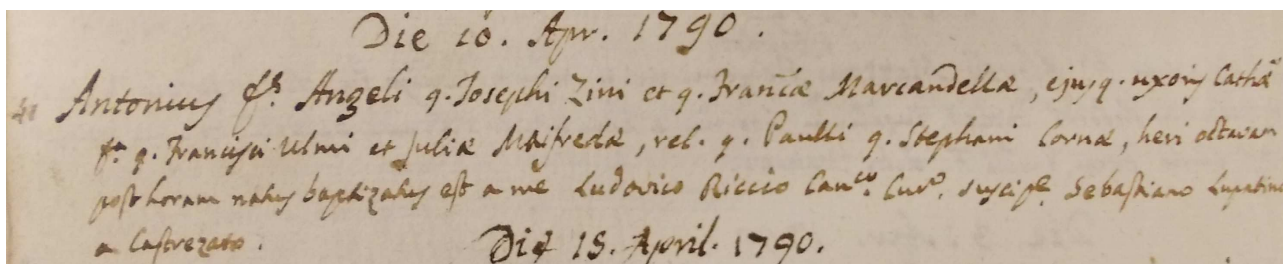 Die 10. Apr. 1790.
Antonius fs. Angeli q. Josephi Zini et q. Francæ Marcandellæ, ejusq. uxoris Cathæ
fæ q. Francisci Ulmi et Juliæ Maifredæ, rel. q. Paulli q. Stephani Cornæ, heri octavam
post horam natus baptizatus est a me Ludovico Riccio Canco. Curo. suscipe. Sebastiano Lupatino
a Castrezato.
Die 15. April. 1790.